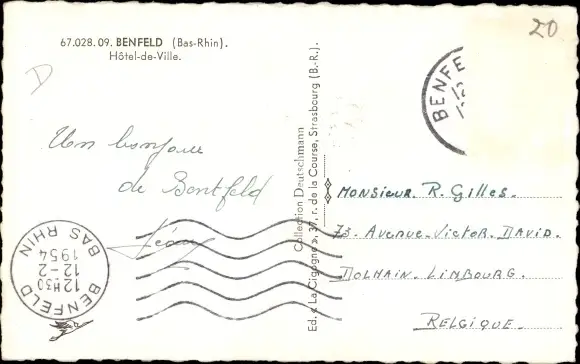 67.028.09. BENFELD (Bas-Rhin).
Hôtel-de-Ville.
20
D
Un bonjour
de Bentfeld
Collection Deutschmann
Ed. « La Cigogne », 37, r. de la Course, Strasbourg (B.-R.).
BENFE
12
MONSIEUR. R. Gilles.
73. AVENUE. VICTOR. DAVID.
DOLHAIN. LIMBOURG.
BELGIQUE.
BENFELD
BAS RHIN
12H30
12-2
1954